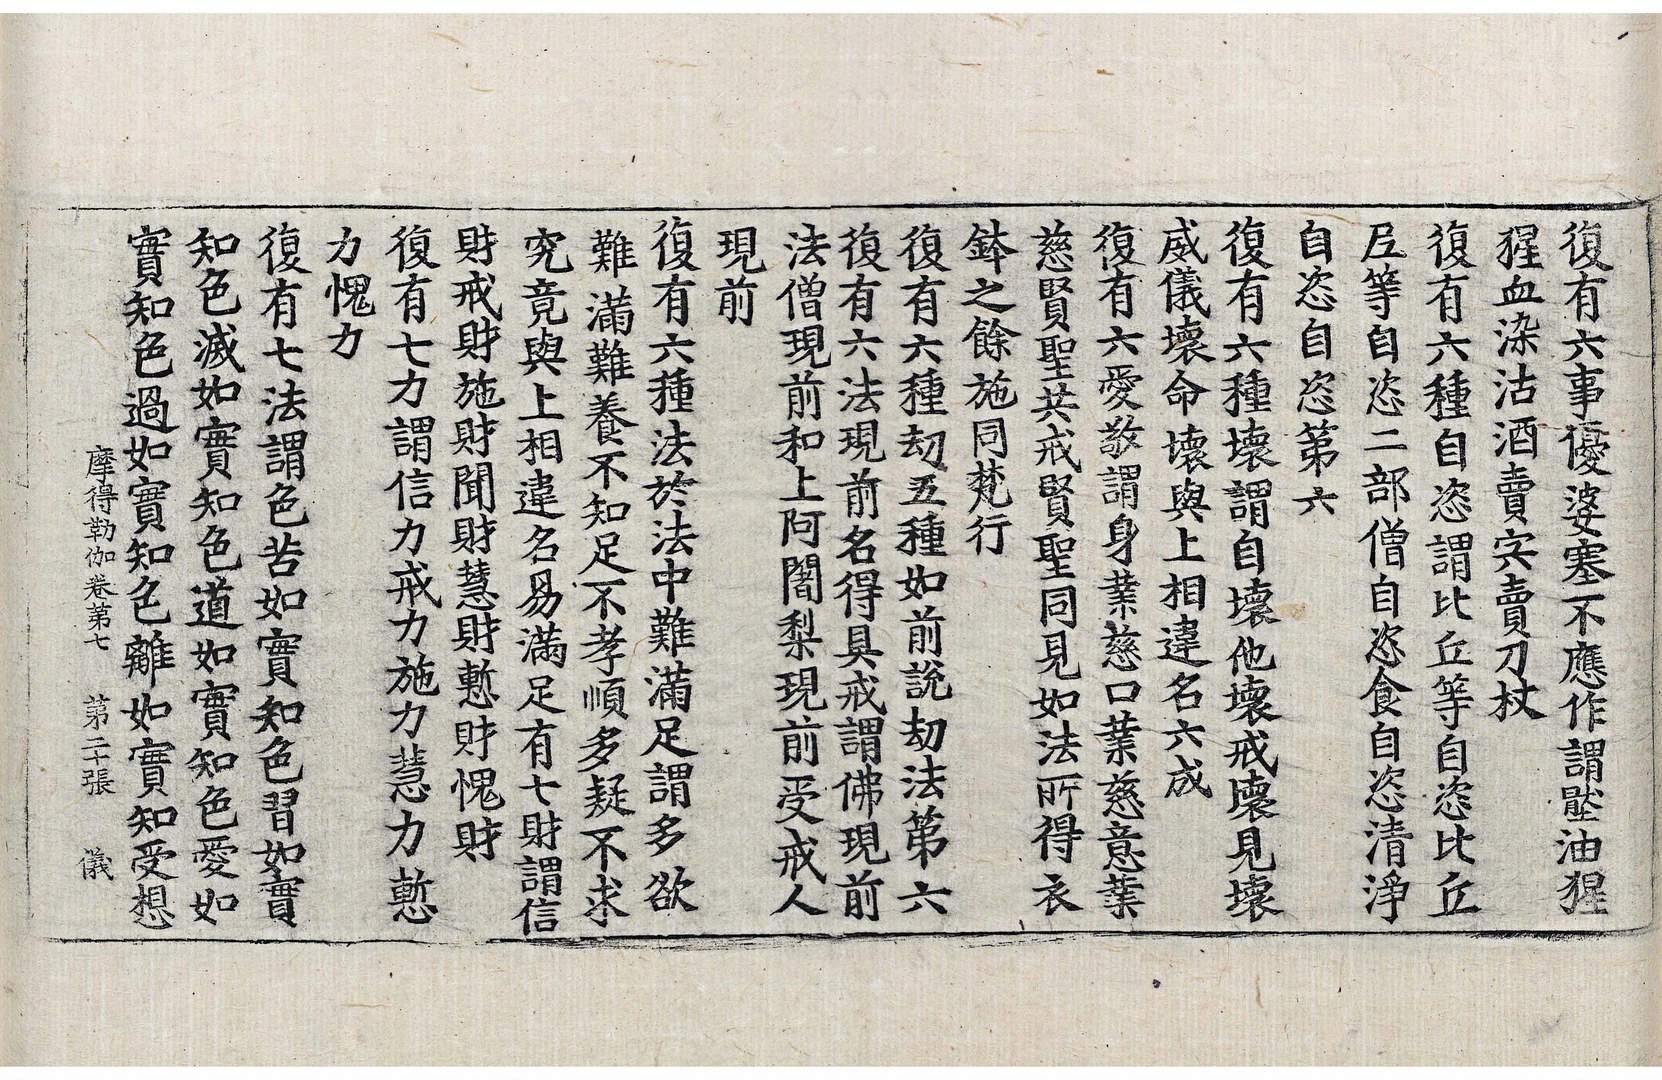 復有六事優婆塞不應作謂壓油猩
猩血染沽酒賣宍賣刀杖
復有六種自恣謂比丘等自恣比丘
尼等自恣二部僧自恣食自恣清淨
自恣自恣第六
復有六種壞謂自壞他壞戒壞見壞
威儀壞命壞與上相違名六成
復有六愛敬謂身業慈口業慈意業
慈賢聖共戒賢聖同見如法所得衣
鉢之餘施同梵行
復有六種劫五種如前說劫法第六
復有六法現前名得具戒謂佛現前
法僧現前和上阿闍梨現前受戒人
現前
復有六種法於法中難滿足謂多欲
難滿難養不知足不孝順多疑不求
究竟與上相違名易滿足有七財謂信
財戒財施財聞財慧財慙財愧財
復有七力謂信力戒力施力慧力慙
力愧力
復有七法謂色苦如實知色習如實
知色滅如實知色道如實知色愛如
實知色過如實知色離如實知受想
摩得勒伽卷第七 第二十張 儀